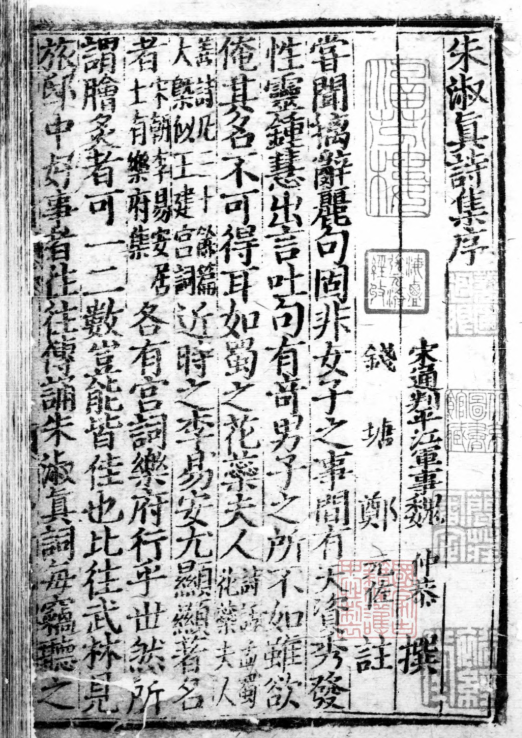 朱淑真詩集序
宋通判平江軍事魏 仲恭 撰
錢塘 鄭 元佐 註
甞聞摛辭麗句固非女子之事間有天資秀發
性靈鍾慧出言吐句有奇男子之所不如雖欲
俺其名不可得耳如蜀之花蘂夫人 詩話孟蜀花蘂夫人
嘗詩凡三十餘篇大槩似王建宮詞 近時之李易安尤顯顯著名
者 宋朝李易安居士有樂府集 各有宮詞樂府行乎世然所
謂膾炙者可一二數豈能皆佳也比往武林見
旅邸中好事者往往傳誦朱淑真詞每竊聽之